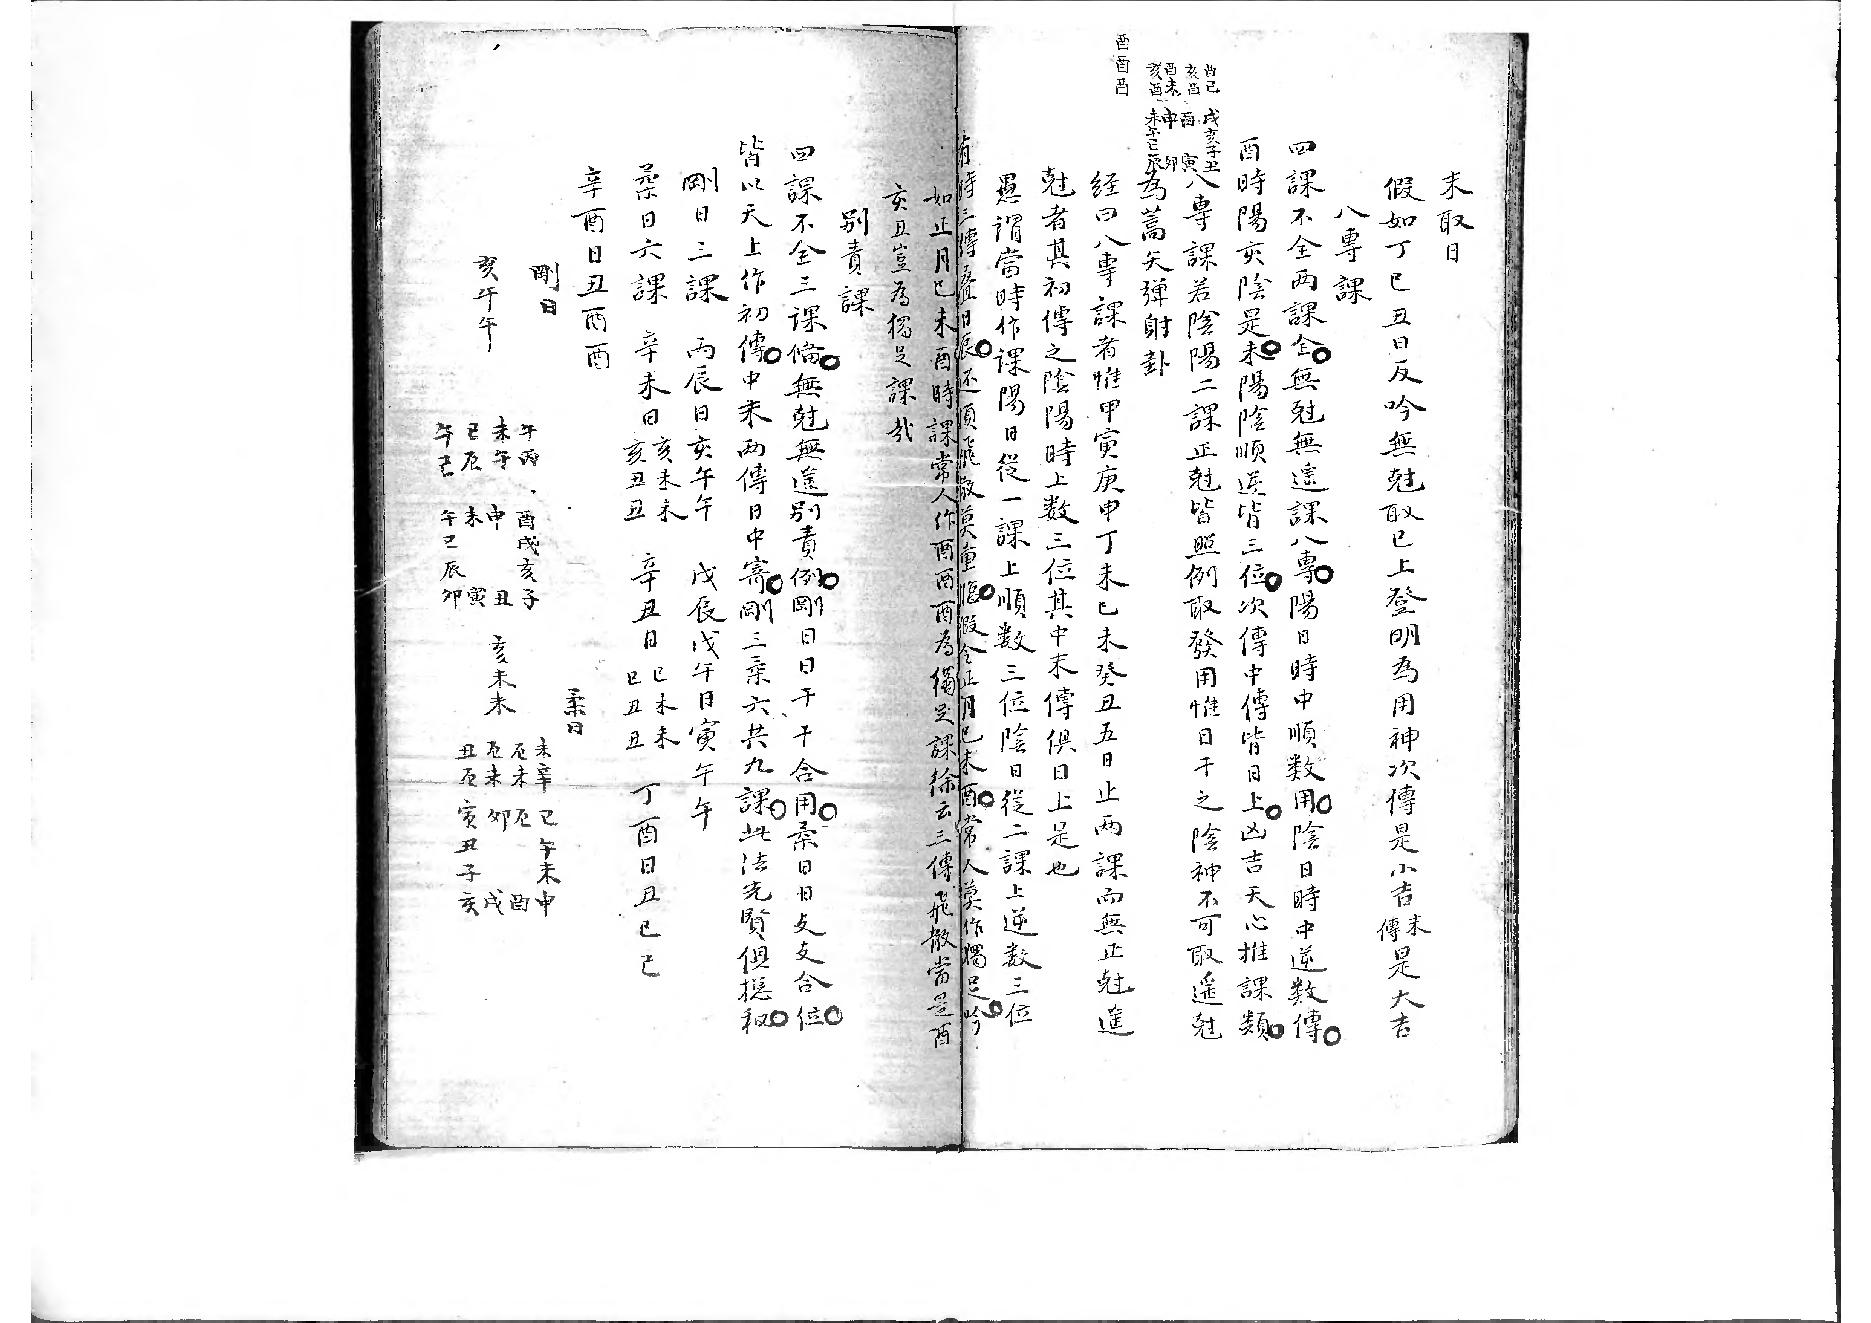 末取日
假如丁巳丑日反吟無尅取巳上登明為用神次傳是小吉末傳是大吉
八專課
四課不全两課全無尅無遥課八專陽日時中順数用陰日時中逆数傳
酉時陽亥陰是未陽陰順逆皆三位次傳中傳皆日上凶吉天心推課類
八專課若陰陽二課正尅皆照例取發用惟日干之陰神不可取遥尅
為蒿矢弹射卦
酉巳 戌亥子丑
亥酉 酉 寅
酉未 申 卯
亥酉 未午巳辰
酉酉酉
经曰八專課者惟甲寅庚申丁未己未癸丑五日止两課而無正尅遥
尅者其初傳之陰陽時上数三位其中末傳俱日上是也
愚謂當時作課陽日從一課上順数三位陰日從二課上逆数三位
有時三傳叠日辰还須飛散莫重临假令正月己未酉常人莫作獨足吟
如正月己未酉時課常人作酉酉酉為獨足課徐云三傳飛散當是酉
亥丑豈為獨足課哉
别責課
四課不全三課俻無尅無遥别責例剛日日干干合用柔日日支支合位
皆以天上作初傳中末两傳日中寄剛三柔六共九課此法先賢俱穏秘
剛日三課 丙辰日亥午午 戊辰戊午日寅午午
柔日六課 辛未日亥未未 亥丑丑 辛丑日巳未未 巳丑丑 丁酉日丑巳巳
辛酉日丑酉酉
剛日
亥午午
午丙 酉戌亥子
未午 申 丑
巳辰 未 寅
午巳 午巳辰卯
柔日
亥未未
未辛 巳午未申
辰未 辰 酉
辰未 卯 戌
丑辰 寅丑子亥